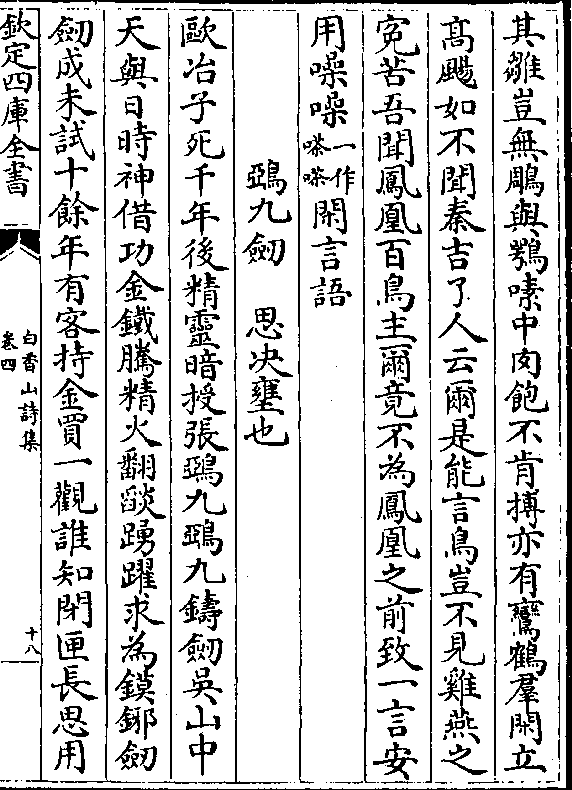 其雛豈無鵰與鶚嗉中肉飽不肯搏亦有鸞鶴羣閒立
髙颺如不聞秦吉了人云爾是能言鳥豈不見雞燕之
寃苦吾聞鳳凰百鳥主爾竟不為鳳凰之前致一言安
用噪噪一作喿喿閒言語
鵶九劒　思决壅也
歐冶子死千年後精靈暗授張鵶九鵶九鑄劒吳山中
天與日時神借功金鐵騰精火翻燄踴躍求為鏌鋣劒
劒成未試十餘年有客持金買一觀誰知閉匣長思用
欽定四庫全書
白香山詩集
卷四
十八